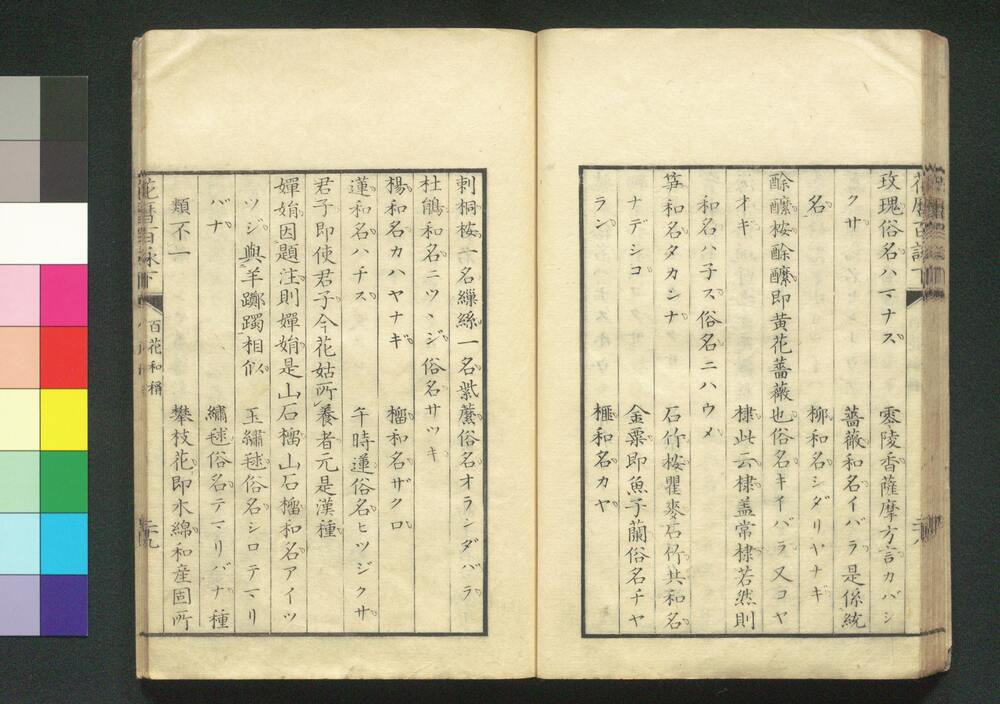 玫瑰俗名ハマナス　零陵香薩摩方言カバシ
クサ　薔薇和名イバラ是係統
名　柳和名シダリヤナギ
酴醾桉酴醾即黄花薔薇也俗名キイバラ又コヤ
オギ　棣此云棣蓋常棣若然則
和名ハ子ス俗名ニハウメ
笋和名タカシナ　石竹桉瞿麥石竹共和名
ナデシコ　金粟即魚子蘭俗名チヤ
ラン　榧和名カヤ
花曆百詠下
刺桐桉一名纙絲一名紫薫俗名オランダバラ
杜鵑和名ニツヽジ俗名サツキ
楊和名カハヤナギ　榴和名ザクロ
蓮和名ハチス　午時蓮俗名ヒツジクサ
君子即使君子今花姑所養者元是漢種
嬋娟因題注則嬋娟是山石榴山石榴和名アイツ
ツジ與羊躑躅相似　玉繡毬俗名シロテマリ
バナ　繡毬俗名テマリバナ種
類不一　攀枝花即木綿和産固所
花曆百詠下　百花和稱　二九